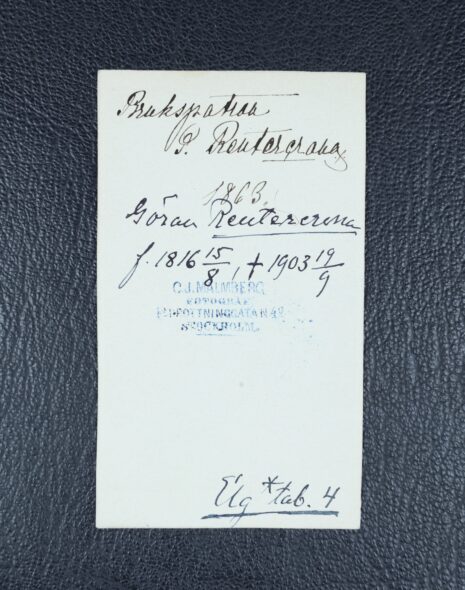 Brukspatron
G. Reutercrona
1863.
Göran Reutercrona
f. 1816 15/8, † 1903 19/9
C.J. MALMBERG
FOTOGRAF
DROTTNINGGATAN 42
STOCKHOLM.
Elg * tab. 4